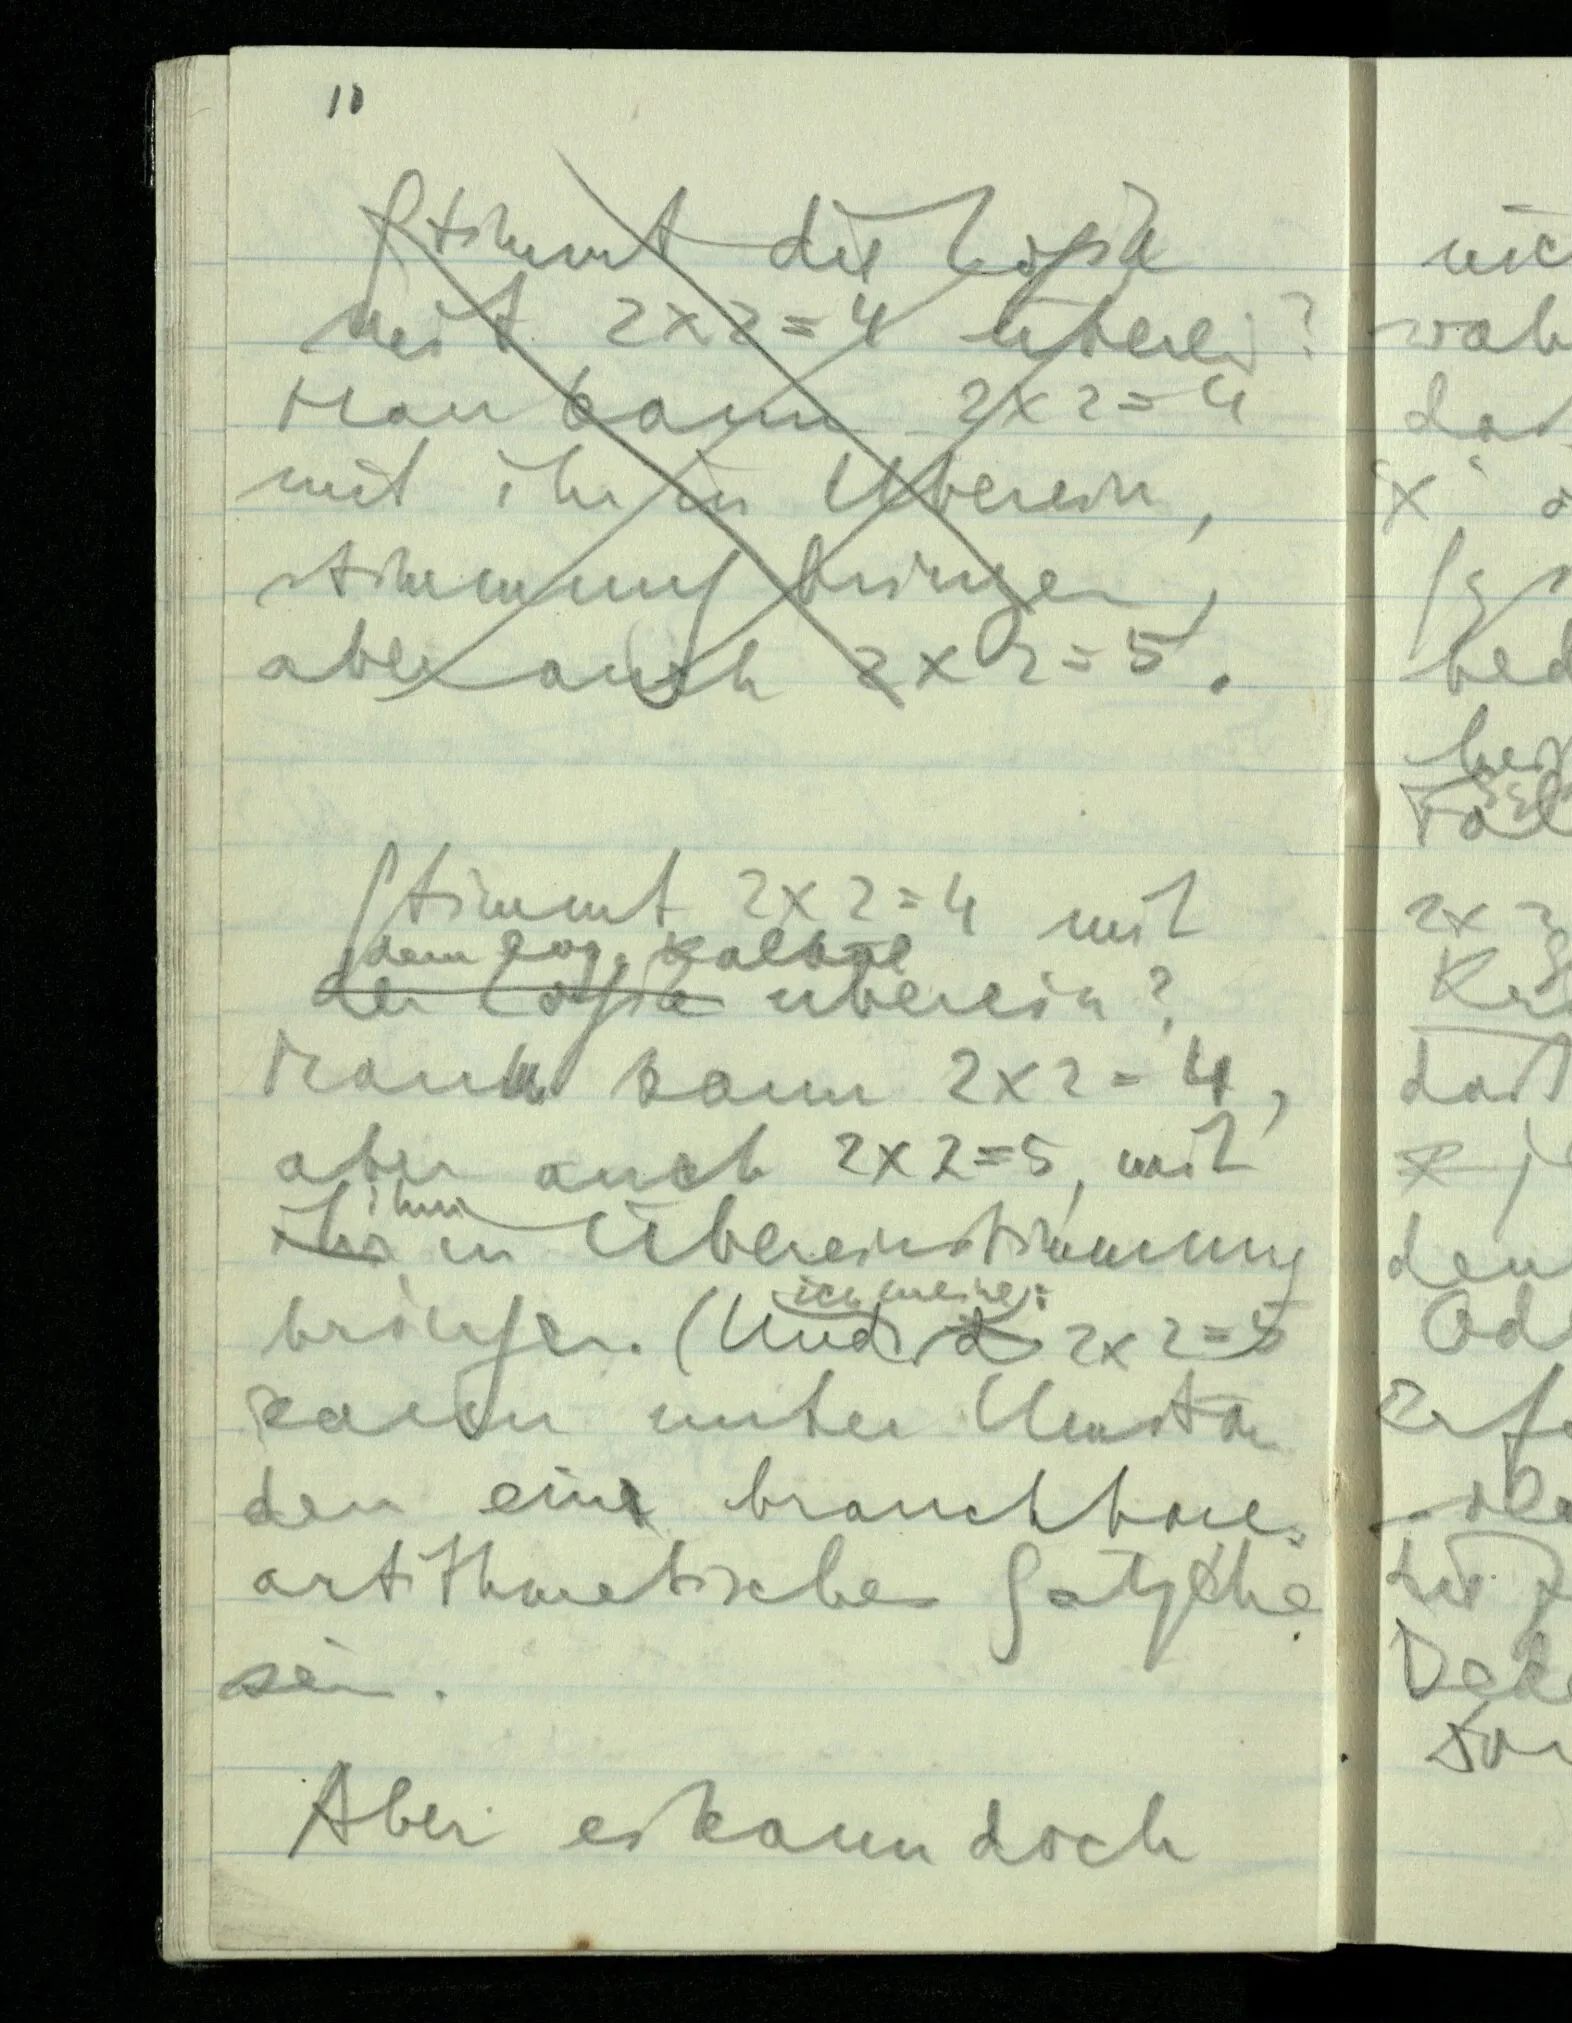 10
Stimmt die Logik
mit 2x2=4 überein?
Man kann 2x2=4
mit ihr in Überein,
stimmung bringen,
aber auch 2x2=5.
Stimmt 2x2=4 mit
dem log. Kalkül
der Logik überein?
Mann kann 2x2=4,
aber auch 2x2=5, mit
ihm
ihr in Übereinstimmung
bringen. (Und
ich meine:
2x2=5
kann unter Umstän
den eine brauchbare
arithmetische
sein.
Aber es kann doch
nic
wah
daß
'x'
bed
2x2
daß
den
Od